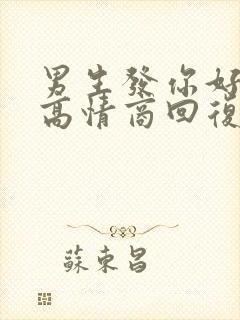 男生發你好
高情商回復
蘇東昌